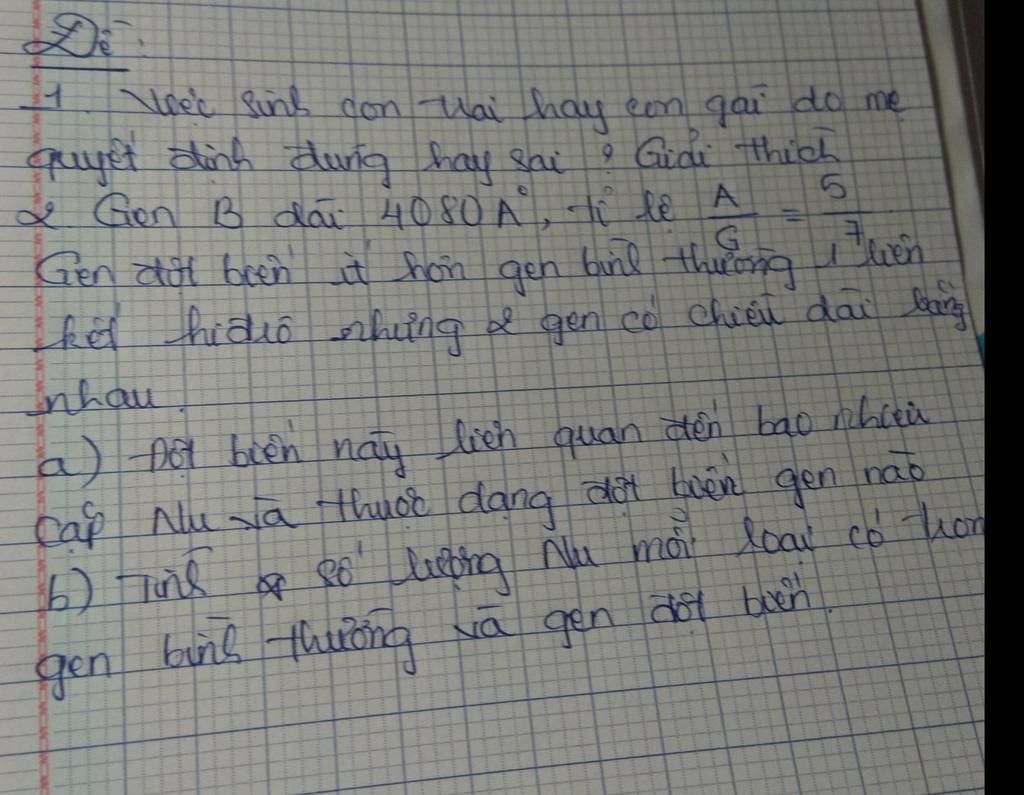 Đề:
1. Việc sinh con trai hay con gái do mẹ
quyết định đúng hay sai ? Giải thích
2 Gen B dài 4080A°, tỉ lệ A/G = 5/7
Gen đột biến ít hơn gen bình thường 1 liên
kết hiđrô nhưng 2 gen có chiều dài bằng
nhau.
a) Đột biến này liên quan đến bao nhiêu
cặp Nu và thuộc dạng đột biến gen nào
b) Tính số lượng Nu mỗi loại có tron
gen bình thường và gen đột biến.